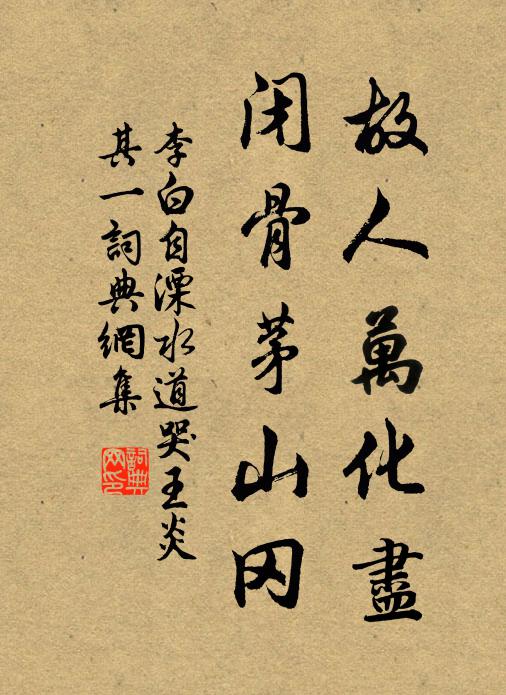 故人萬化盡
闭骨茅山冈
李白自溧水道哭王炎
其一詞典網集
詞典
网印